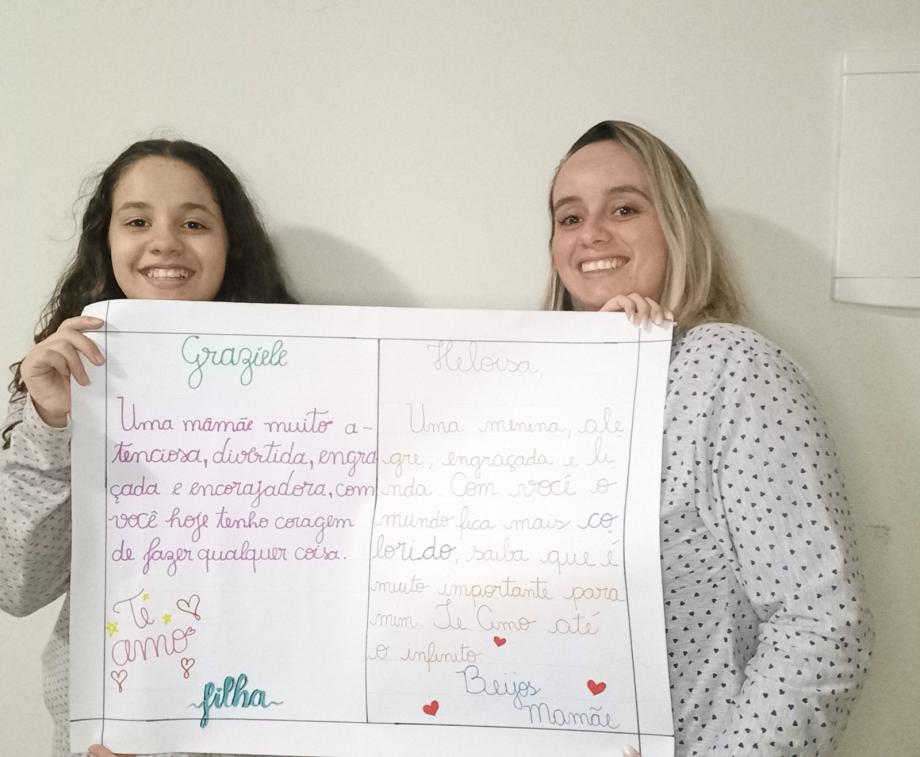 Graziele
Uma mâmãe muito a-
tenciosa, divertida, engra
çada e encorajadora, com
você hoje tenho coragem
de fazer qualquer coisa.
Te
amo
~filha~
Heloisa,
Uma menina, ale
gre, engraçada e li
nda. Com você o
mundo fica mais co
lorido, saiba que é
muito importante para
mim. Te Amo até
o infinito.
Beijos
Mamãe